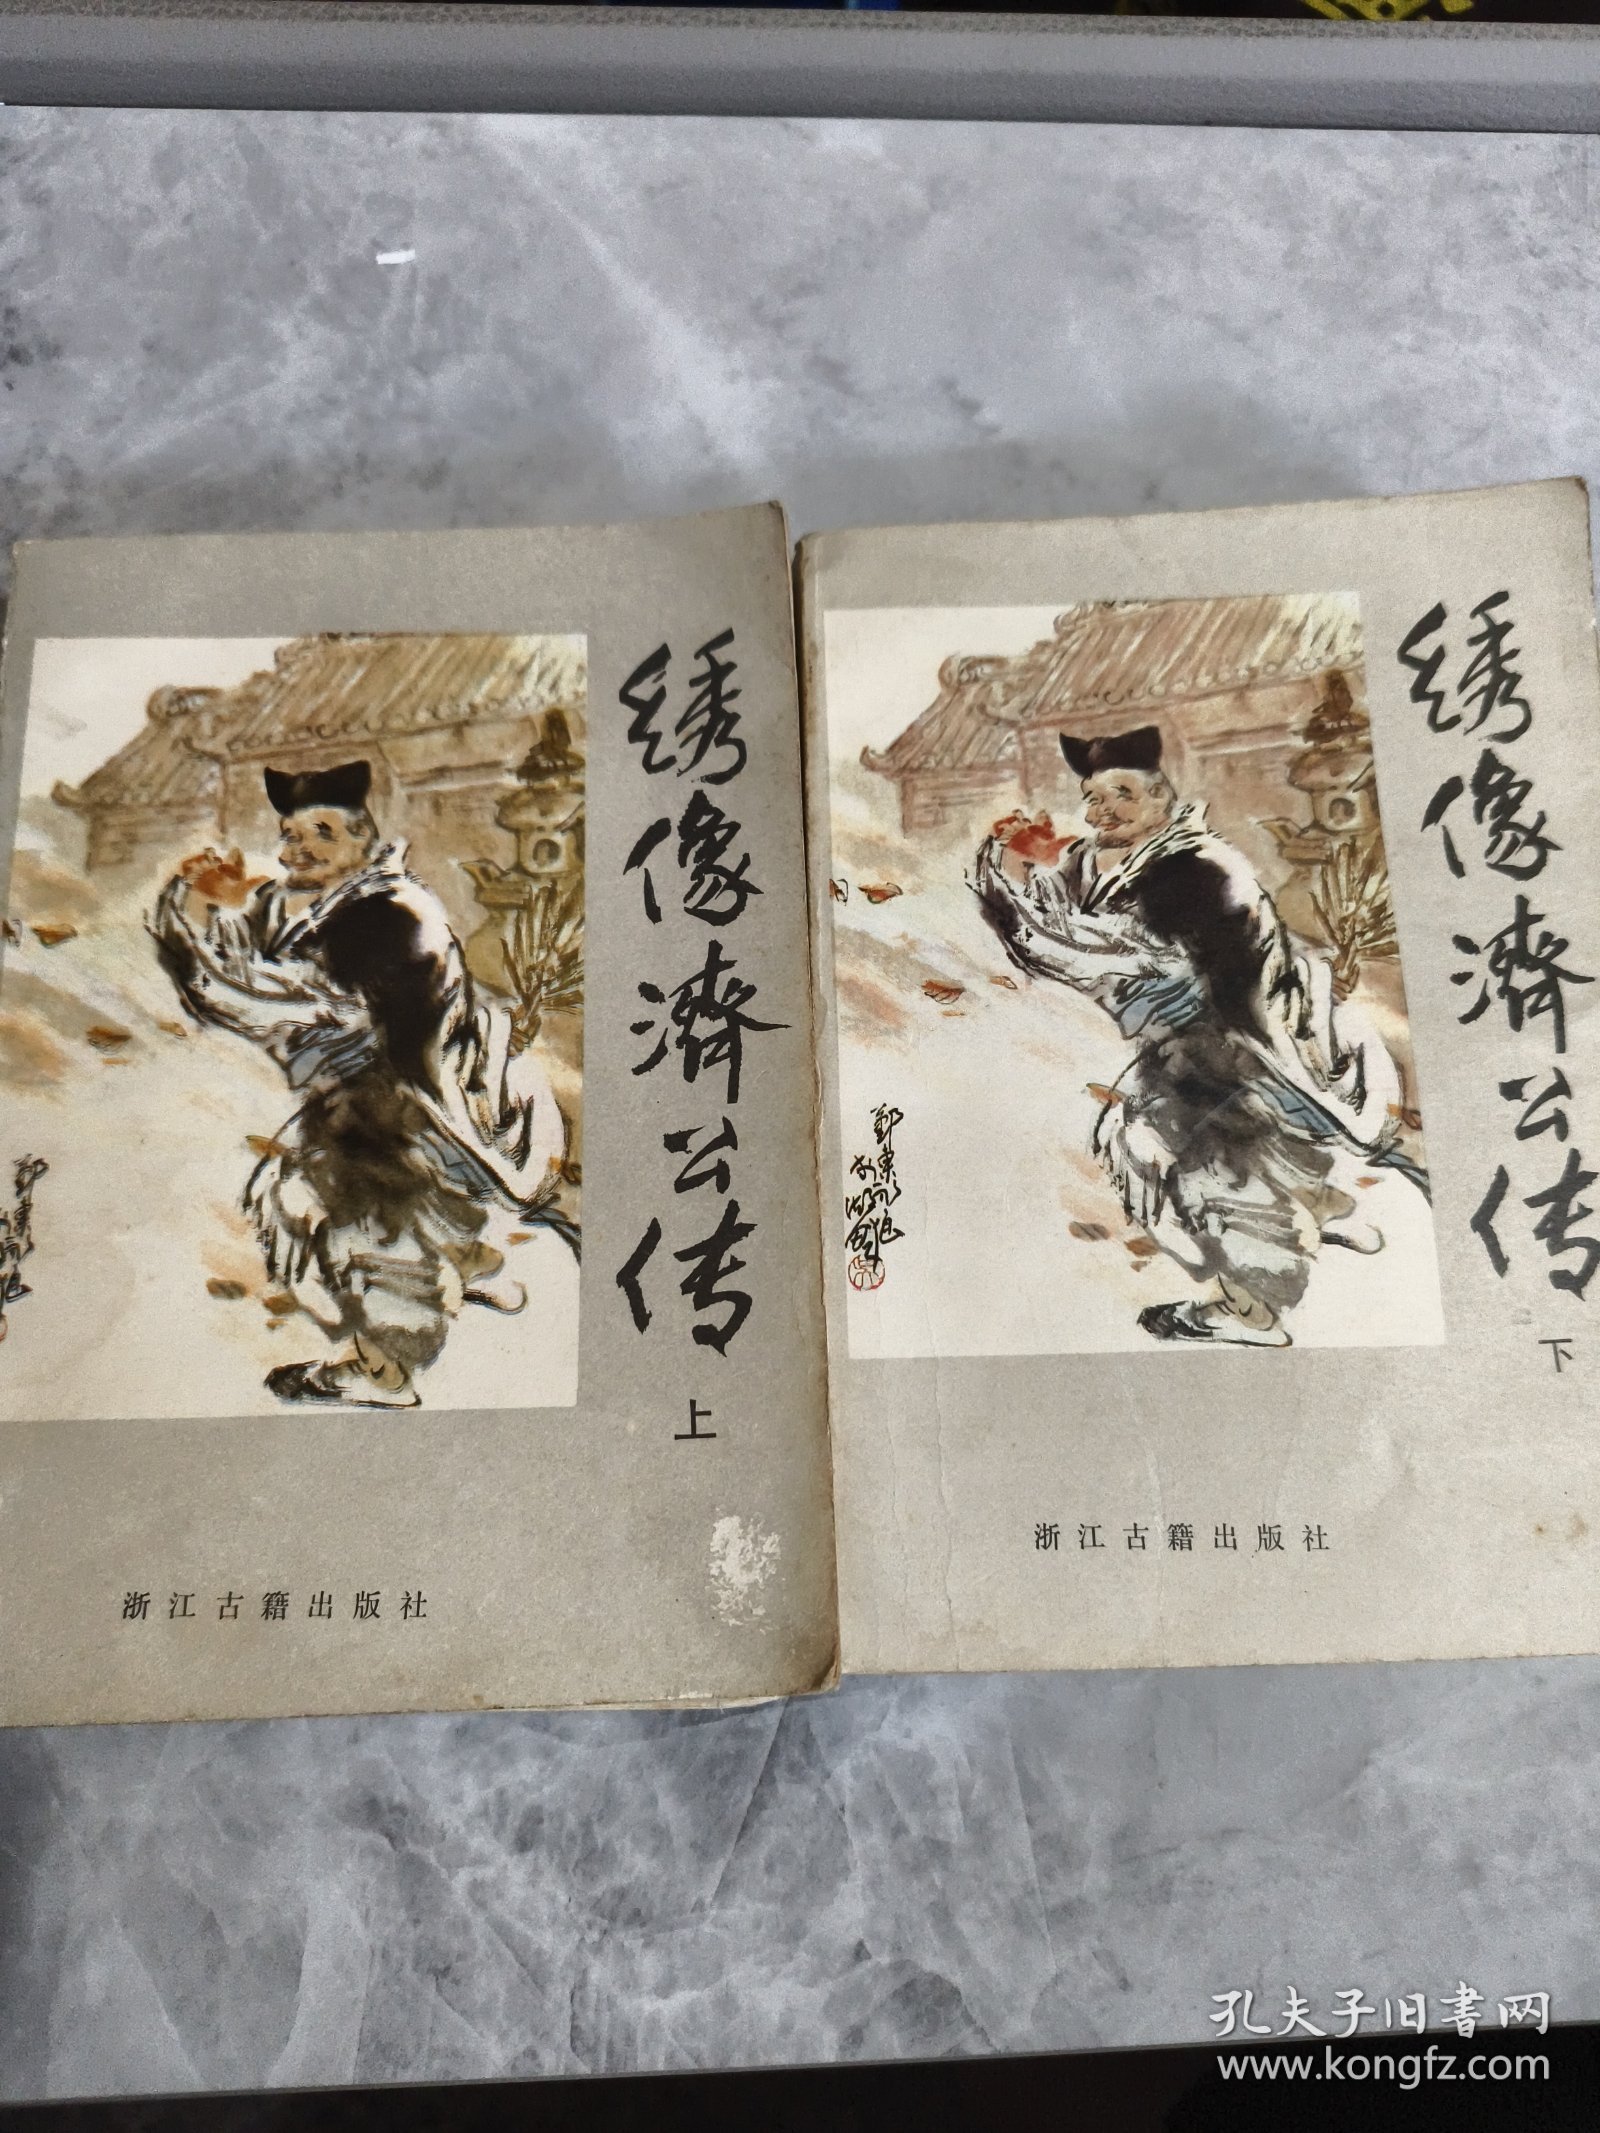 绣像濟公传
上
浙江古籍出版社
绣像濟公传
下
浙江古籍出版社
孔夫子旧书网
www.kongfz.com